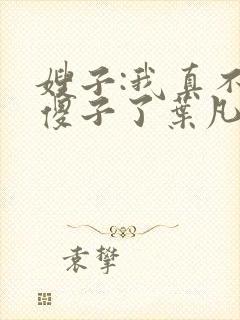 嫂子:我真不
傻子了葉凡
袁攀